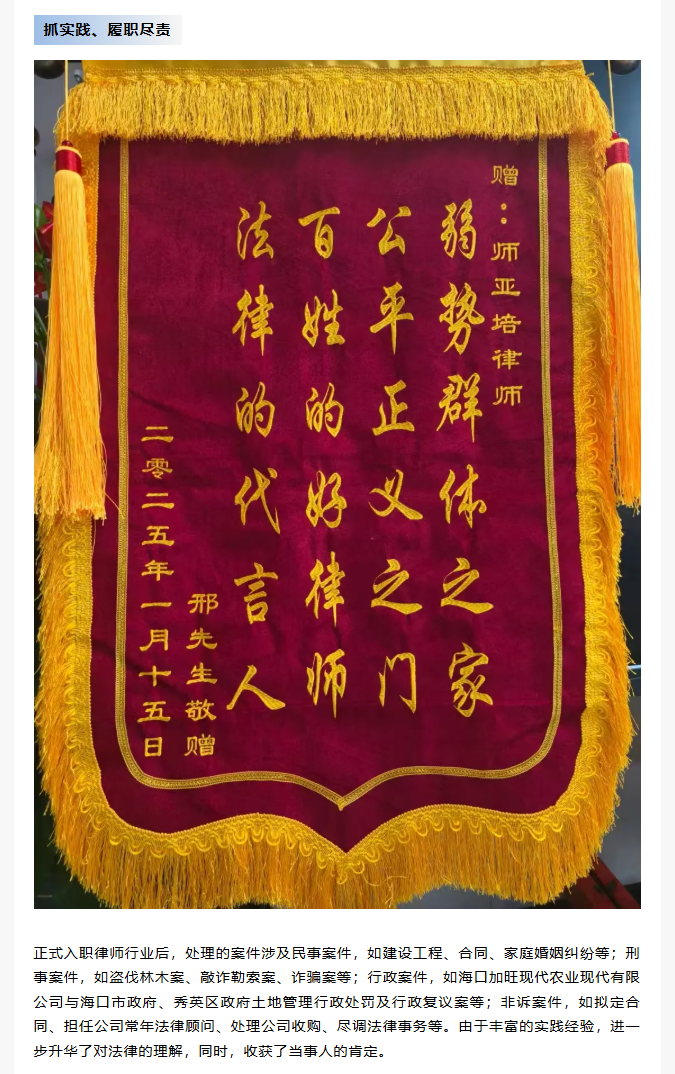 抓实践、履职尽责
赠：师亚培律师
弱势群体之家
公平正义之门
百姓的好律师
法律的代言人
邢先生敬赠
二零二五年一月十五日
正式入职律师行业后，处理的案件涉及民事案件，如建设工程、合同、家庭婚姻纠纷等；刑
事案件，如盗伐林木案、敲诈勒索案、诈骗案等；行政案件，如海口加旺现代农业现代有限
公司与海口市政府、秀英区政府土地管理行政处罚及行政复议案等；非诉案件，如拟定合
同、担任公司常年法律顾问、处理公司收购、尽调法律事务等。由于丰富的实践经验，进一
步升华了对法律的理解，同时，收获了当事人的肯定。